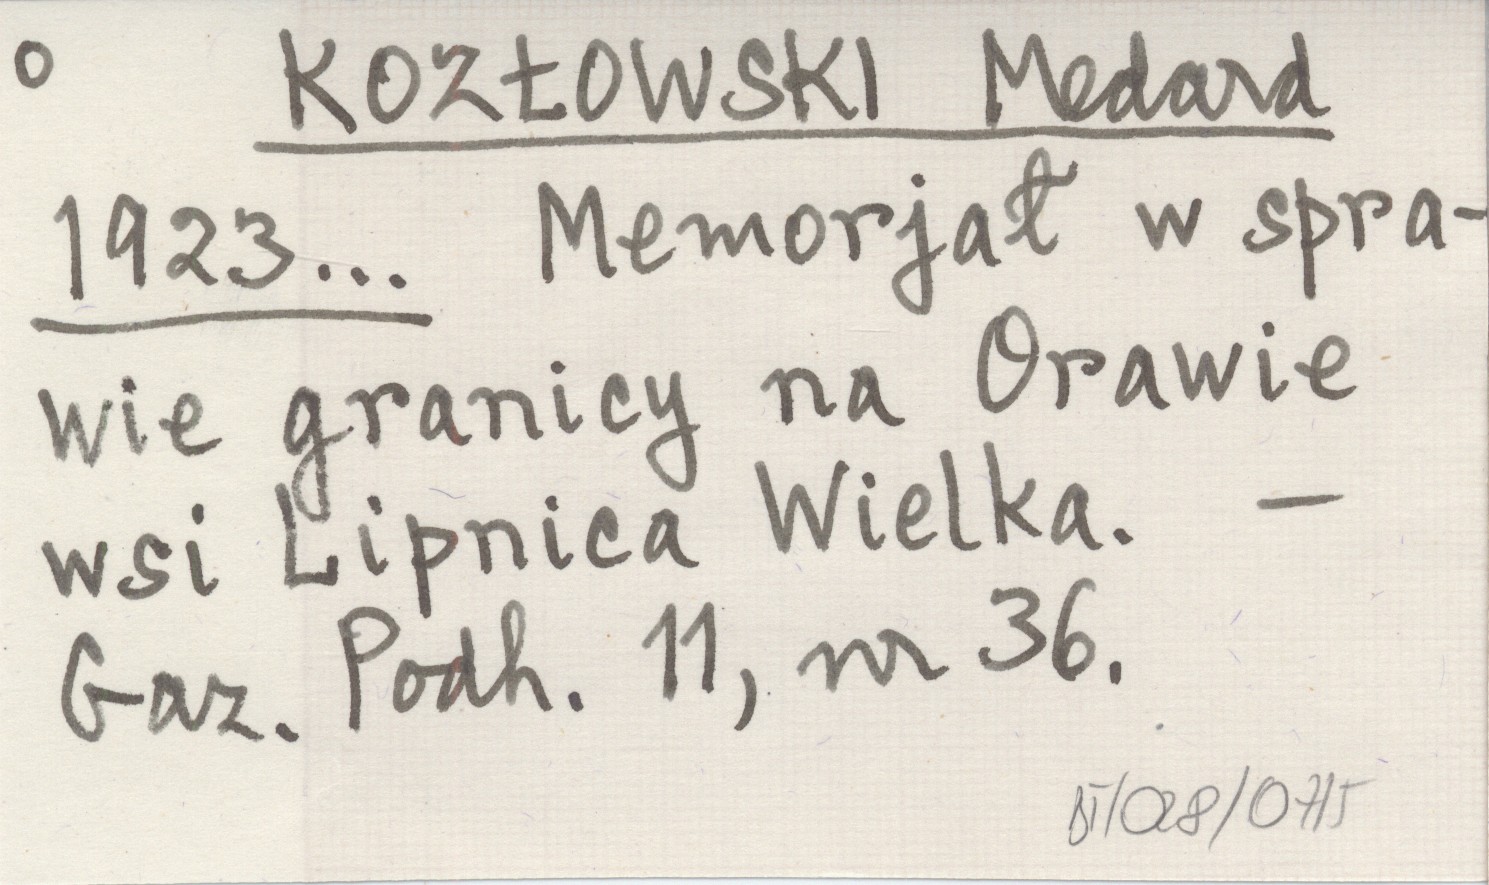 o KOZŁOWSKI Medard
1923... Memorjał w spra-
wie granicy na Orawie
wsi Lipnica Wielka. —
Gaz. Podh. 11, nr 36.